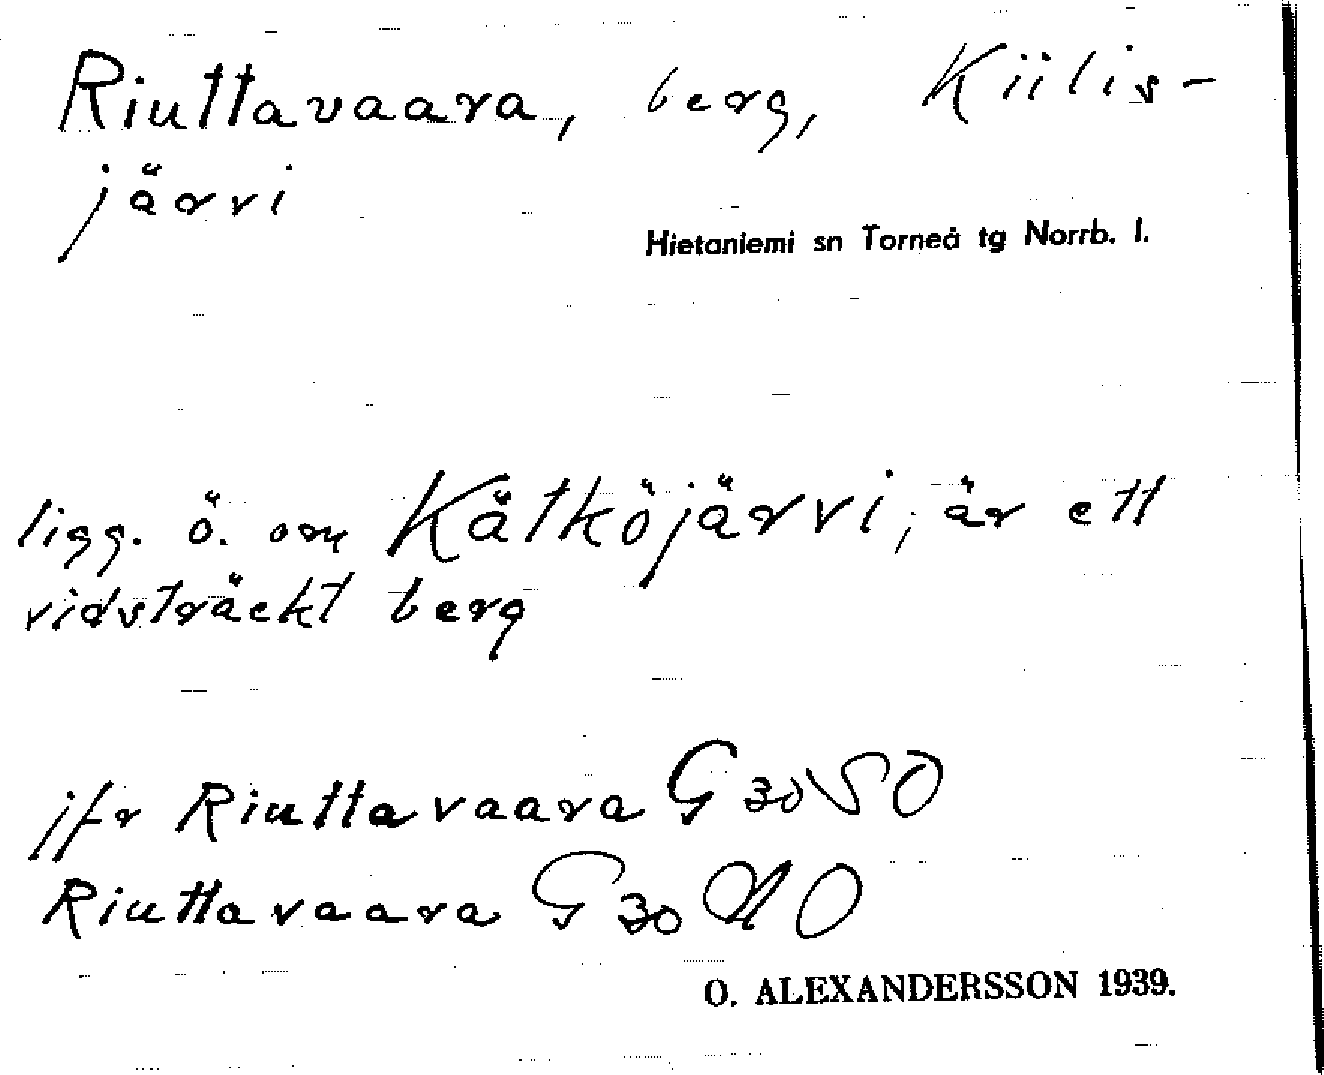 Riuttavaara, berg, Kiilis-
järvi
Hietaniemi sn Torneå tg Norrb. l.
ligg. ö. om Kätköjärvi, är ett
vidsträckt berg
jfr Riuttavaara G 30 SO
Riuttavaara G 30 NO
O. ALEXANDERSSON 1939.